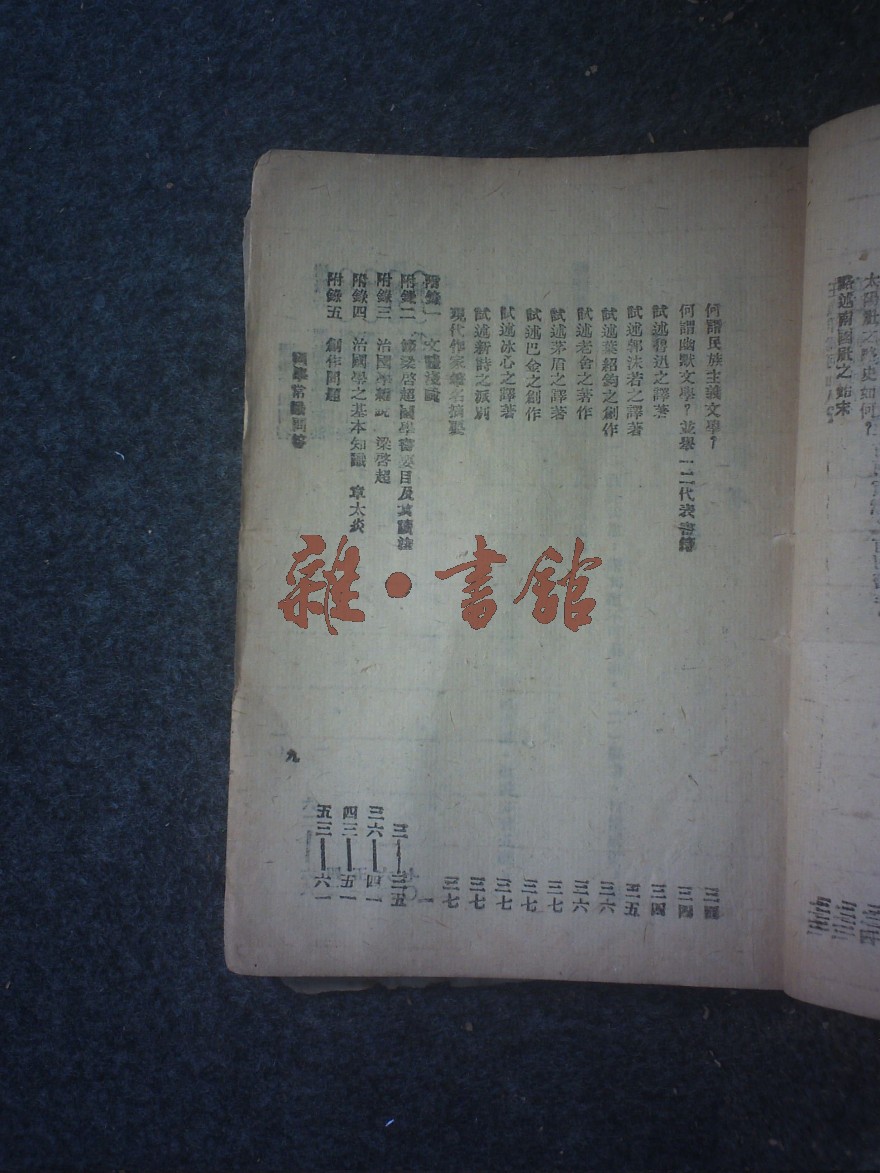 太陽社之略史如何？
略述南國社之始末
何謂民族主義文學？ 三四
何謂幽默文學？並舉一二代表書籍 三四
試述魯迅之譯著 三四
試述郭沫若之譯著 三五
試述葉紹鈞之創作 三六
試述老舍之著作 三六
試述茅盾之譯著 三七
試述巴金之創作 三七
試述冰心之譯著 三七
試述新詩之派別 三七
現代作家筆名摘要 三七
附錄一 文體淺說 一
附錄二 節梁啓超國學書要目及其讀法 三—三五
附錄三 治國學雜說 梁啓超 三六—四一
附錄四 治國學之基本知識 章太炎 四三—五一
附錄五 創作問題 五三—六一
國學常識問答
九
雜·書館